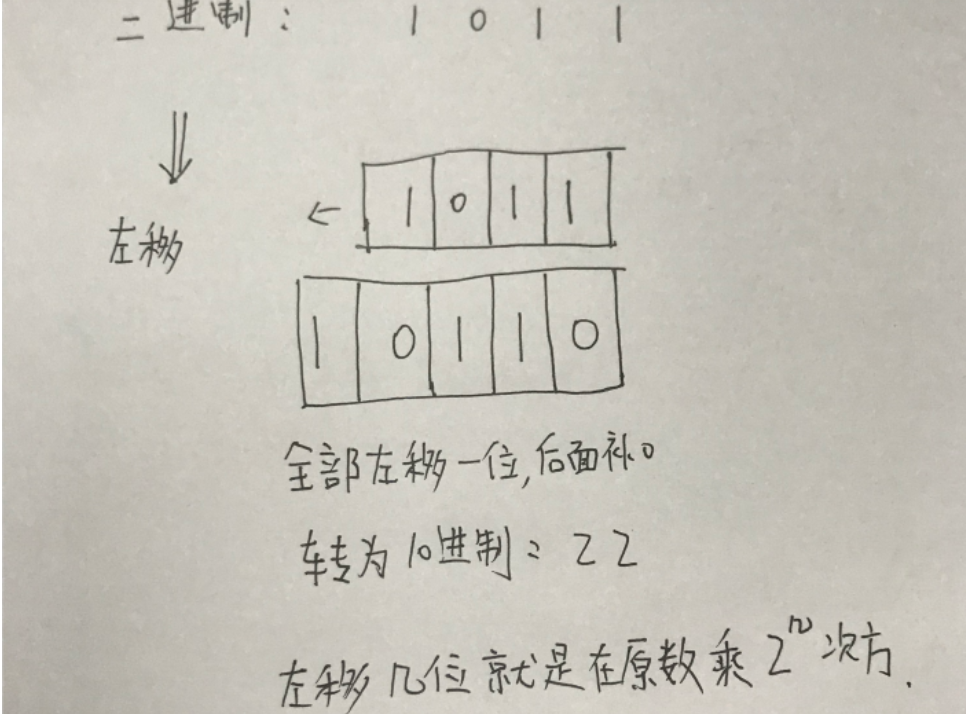 二进制: 1 0 1 1
← 1 0 1 1
左移
1 0 1 1 0
全部左移一位,后面补0
转为10进制: 22
左移几位就是在原数乘2ⁿ次方.